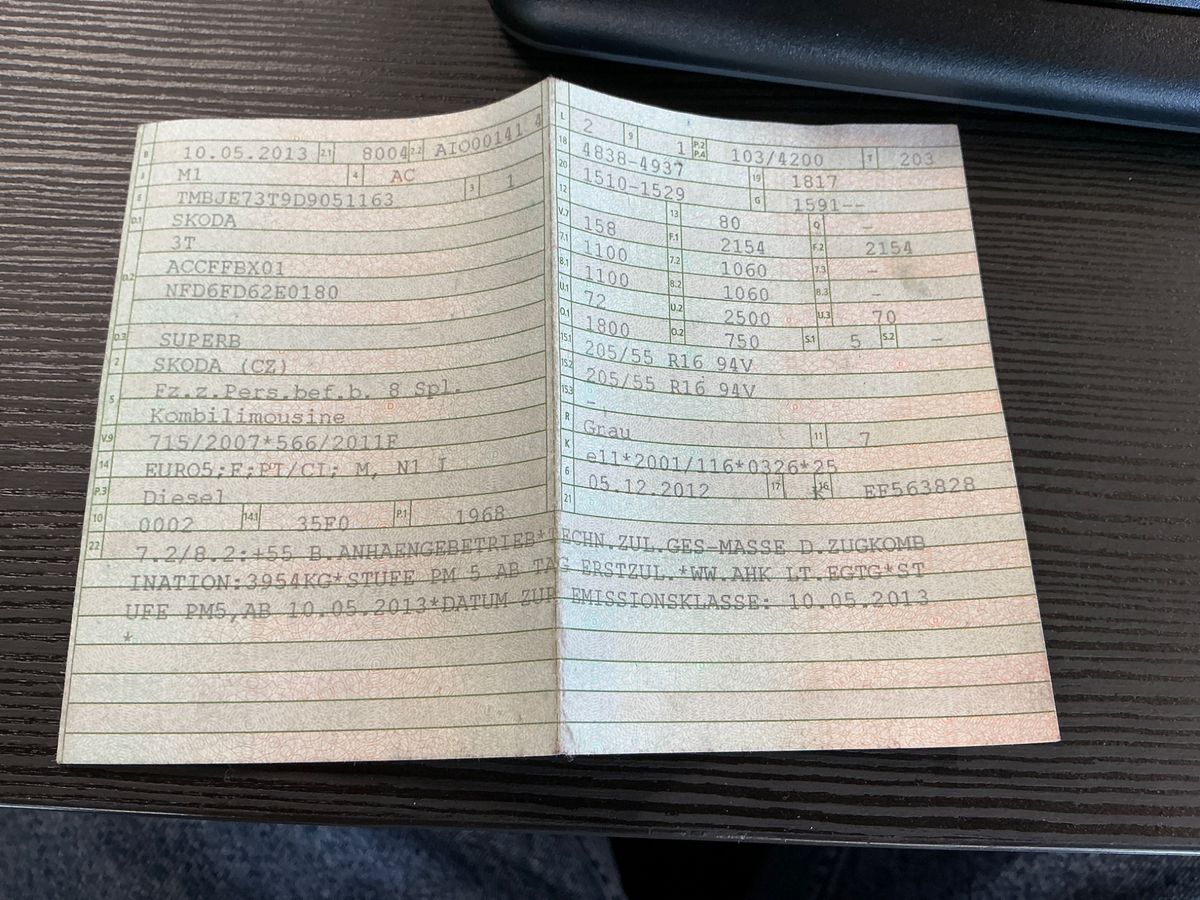 B 10.05.2013 2.1 8004 2.2 AIO00141 4
J M1 4 AC
E TMBJE73T9D9051163 3 1
D.1 SKODA
3T
D.2 ACCFFBX01
NFD6FD62E0180
D.3 SUPERB
2 SKODA (CZ)
5 Fz.z.Pers.bef.b. 8 Spl.
Kombilimousine
V.9 715/2007*566/2011F
14 EURO5;F;PI/CI; M, N1 I
P.3 Diesel
10 0002 14.1 35F0 P.1 1968
L 2 9 1 P.2 P.4 103/4200 T 203
18 4838-4937 19 1817
20 1510-1529 G 1591--
12 13 80 Q -
V.7 158 F.1 2154 F.2 2154
7.1 1100 7.2 1060 7.3 -
8.1 1100 8.2 1060 8.3 -
U.1 72 U.2 2500 U.3 70
O.1 1800 O.2 750 S.1 5 S.2 -
15.1 205/55 R16 94V
15.2 205/55 R16 94V
15.3 -
R Grau 11 7
K e11*2001/116*0326*25
6 05.12.2012 17 K 16 EF563828
21
22 7.2/8.2:+55 B.ANHAENGEBETRIEB*TECHN.ZUL.GES-MASSE D.ZUGKOMB
INATION:3954KG*STUFE PM 5 AB TAG ERSTZUL.*WW.AHK LT.EGTG*ST
UFE PM5,AB 10.05.2013*DATUM ZUR EMISSIONSKLASSE: 10.05.2013
*